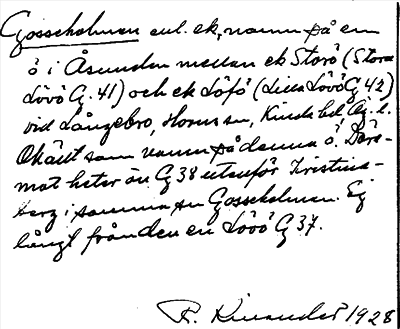 Gosseholmen enl. ek, namn på en
ö i Åsunden mellan ek Storö (Stora
Lövö G. 41) och ek Löfö (Lilla Lövö G 42)
vid Långebro, Horns sn, Kinda hd, Ög. l.
Okänt som namn på denna ö. Där-
mot heter ön G 38 utenför Kristins-
berg i samma sn Gosseholmen. Ej
långt från den en Lövö G 37.
R. Kinander 1928